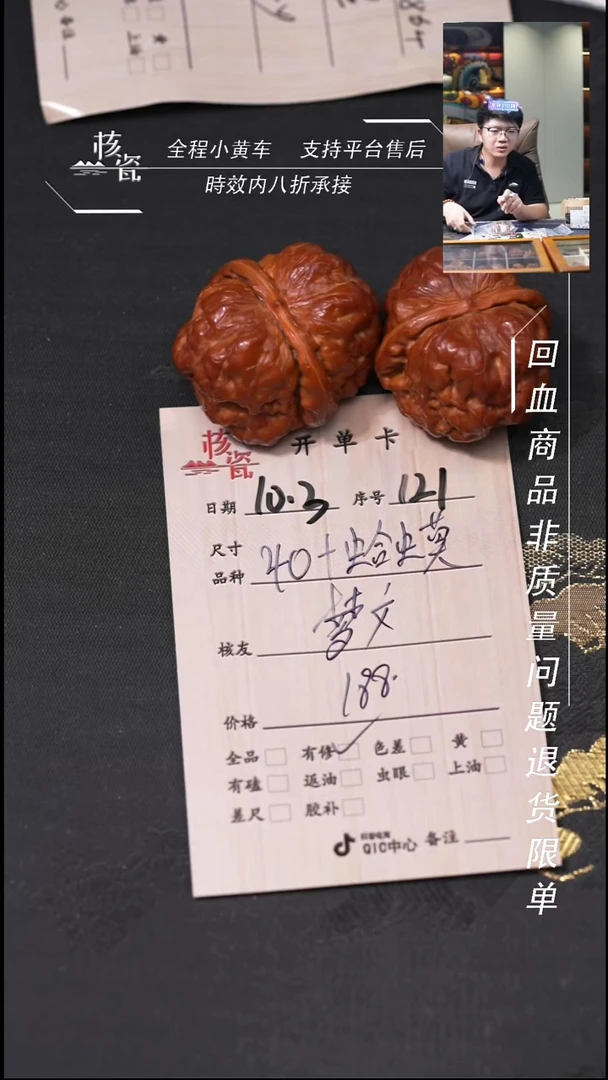 核瓷
全程小黄车 支持平台售后
時效内八折承接
回血商品非质量问题退货限单
核瓷 开单卡
日期 10.3 序号 121
尺寸
品种 40+蛤蟆
核友 梦文
价格 188.
全品 有修 色差 黄
有磕 返油 虫眼 上油
差尺 胶补
抖音电商
QIC中心 备注